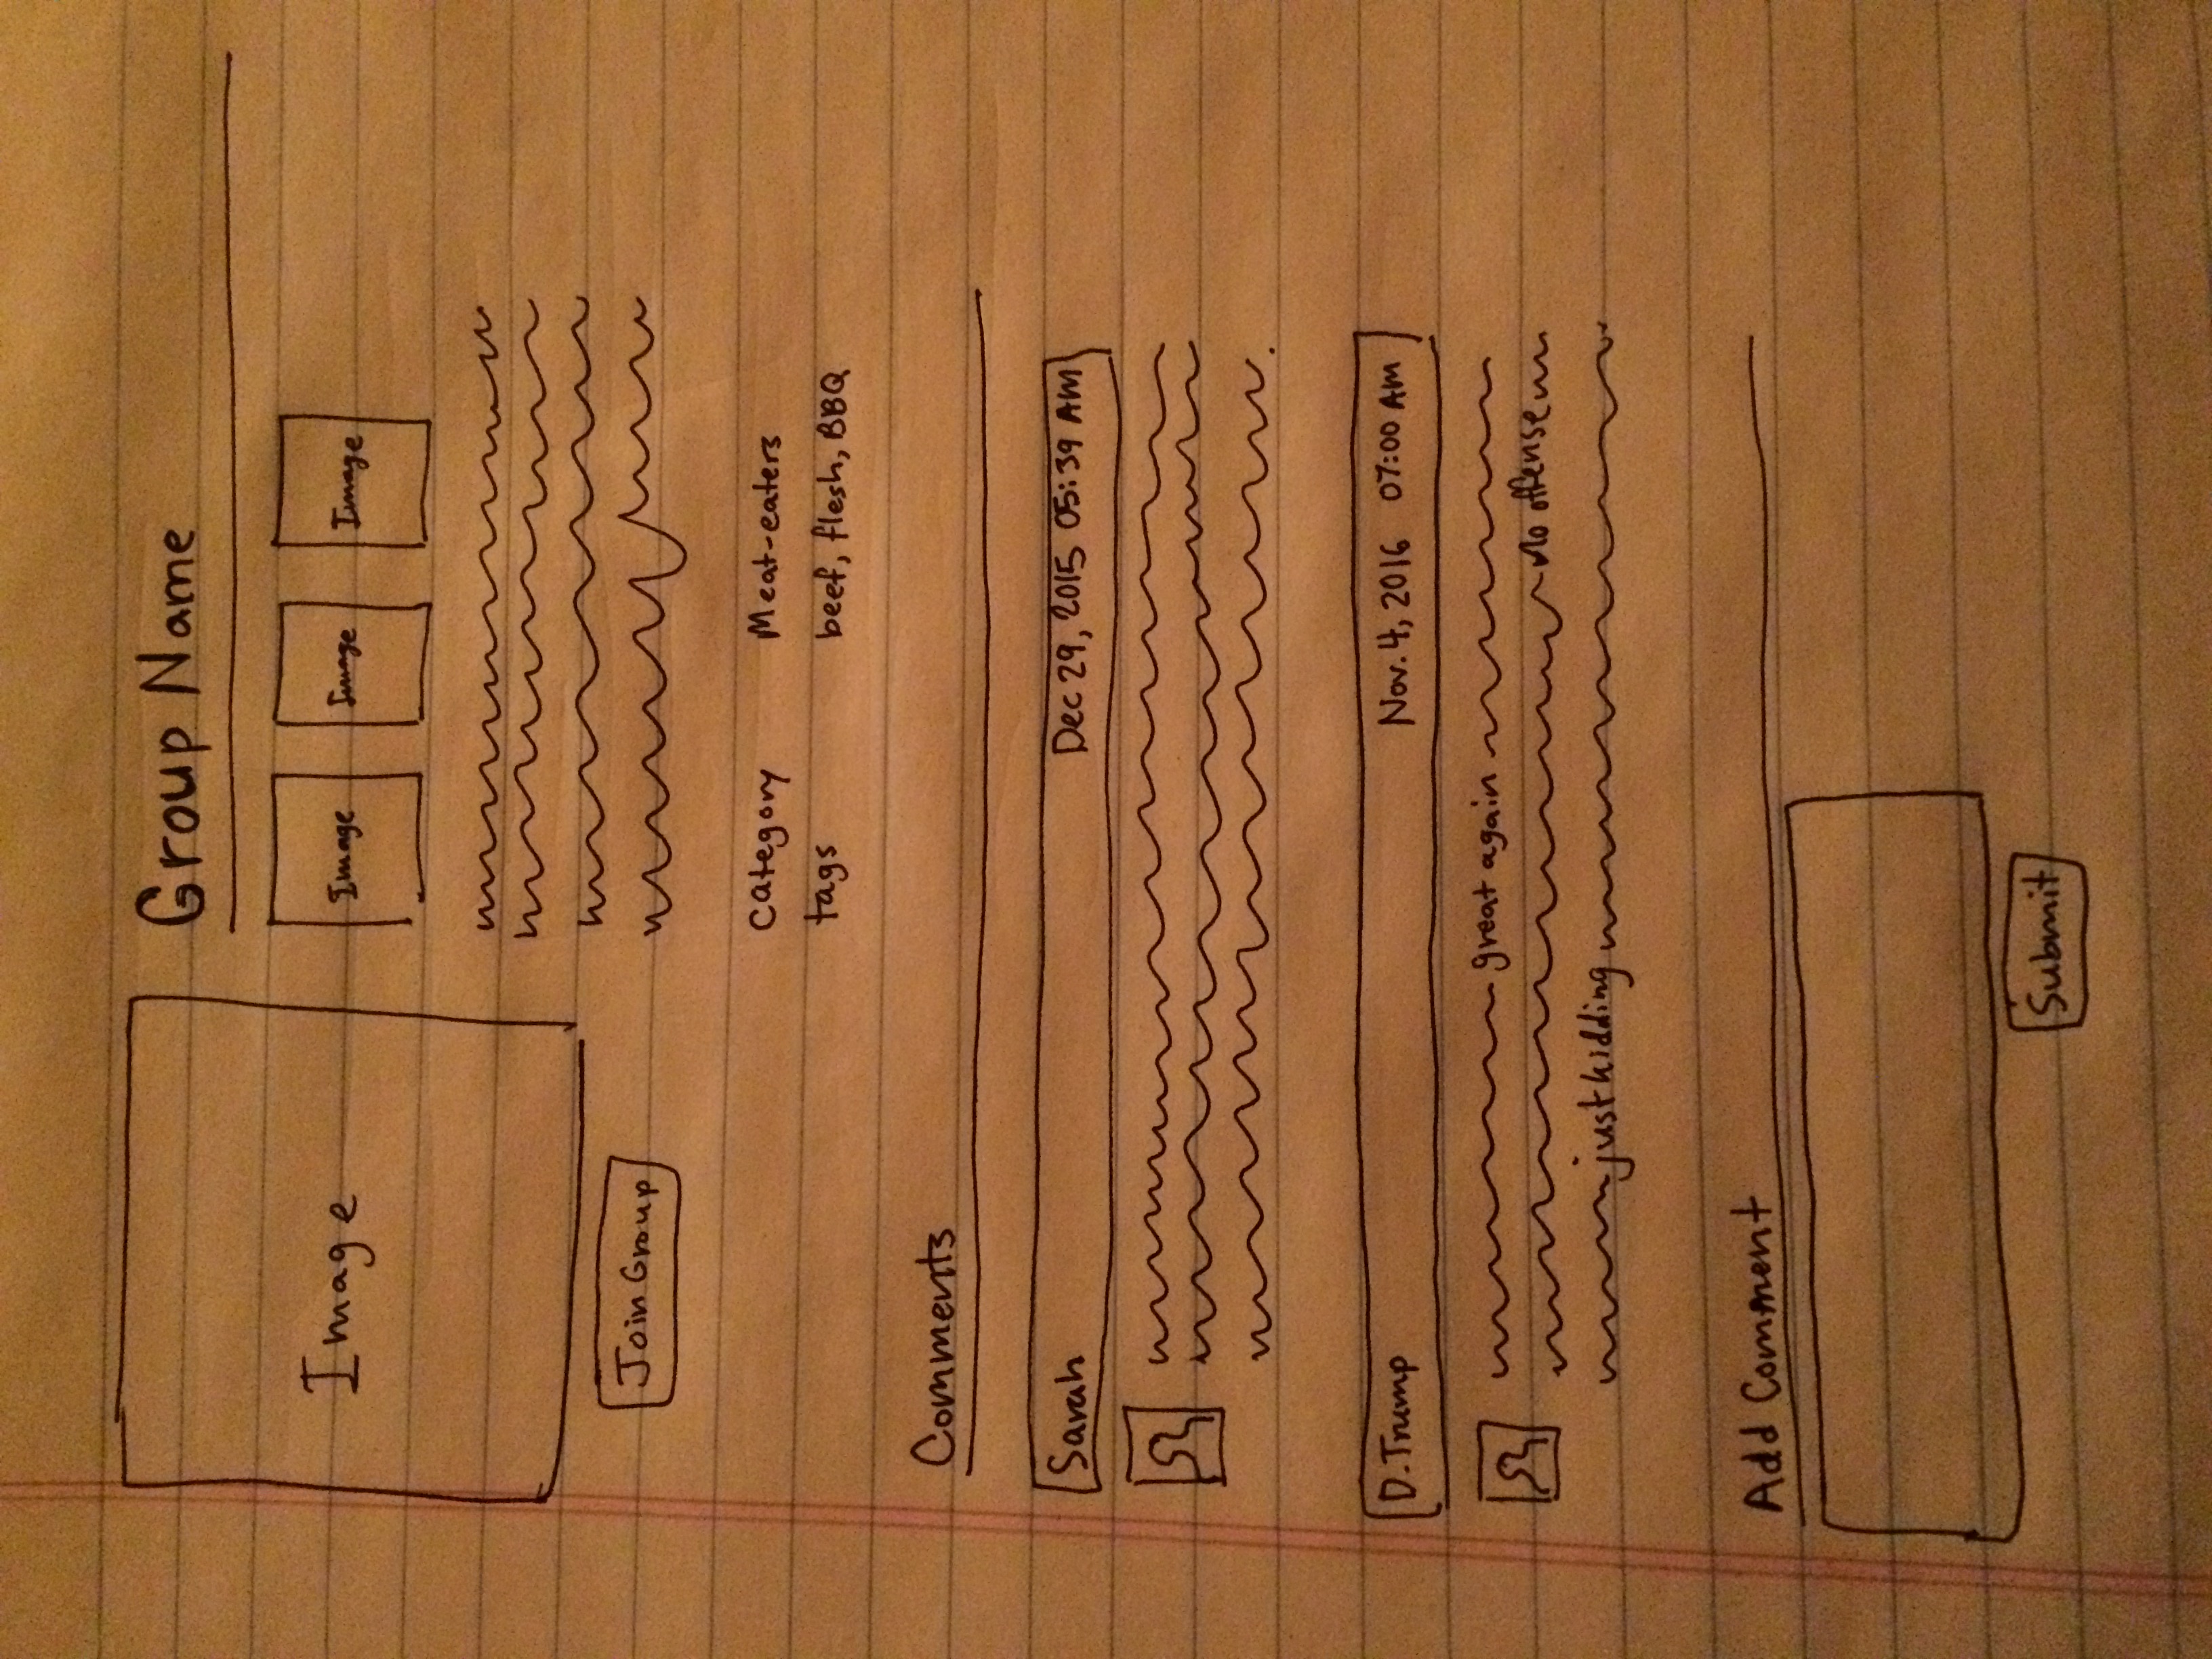 Group Name
Image
Image Image Image
Join Group
Category Meat-eaters
tags beef, flesh, BBQ
Comments
Sarah Dec 29, 2015 05:39 AM
D.Trump Nov. 4, 2016 07:00 AM
great again
No offense
just kidding
Add Comment
Submit